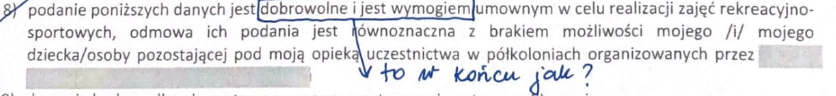 8) podanie poniższych danych jest dobrowolne i jest wymogiem umownym w celu realizacji zajęć rekreacyjno-
sportowych, odmowa ich podania jest równoznaczna z brakiem możliwości mojego /i/ mojego
dziecka/osoby pozostającej pod moją opieką uczestnictwa w półkoloniach organizowanych przez
to w końcu jak?